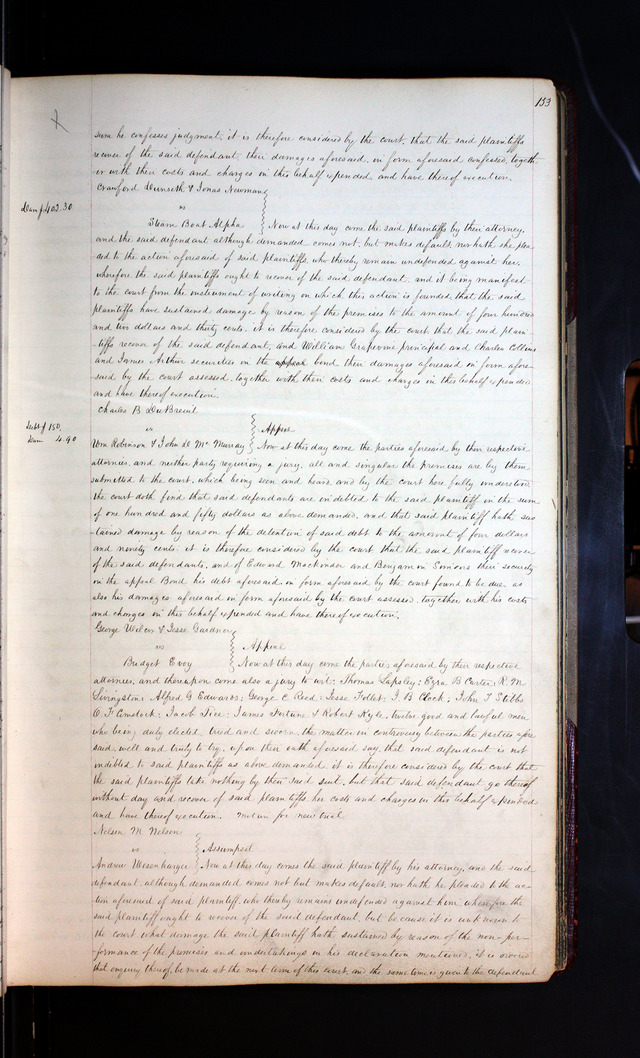 153
sum he confesses judgment, it is therefore considered by the court, that the said plaintiffs
recover of the said defendant, their damages aforesaid, in form aforesaid confessed, togeth-
er with their costs and charges in this behalf expended and have thereof execution.
Crawford Dunseth & Jonas Newman
Dam $402.30 vs
Steam Boat Alpha Now at this day come the said plaintiffs by their attorney,
and the said defendant although demanded comes not, but makes default, nor hath she plea-
ded to the action aforesaid of said plaintiffs, who thereby remain undefended against her,
wherefore the said plaintiffs ought to recover of the said defendant, and it being manifest
to the court from the instrument of writing on which this action is founded, that the said
plaintiffs have sustained damage by reason of the premises to the amount of four hundred
and two dollars and thirty cents, it is therefore considered by the court that the said plain-
-tiffs recover of the said defendant, and William principal and Charles Collins
and James Arthur securities in the bond their damages aforesaid in form afore-
said by the court assessed, together with their costs and charges in this behalf expended
and have thereof execution.
Charles B DuBreuil
Debt $150. vs Appeal
Dam 4.90 Wm Robinson & John D. McMurray Now at this day come the parties aforesaid by their respective
attornies, and neither party requiring a jury, all and singular the premises are by them
submitted to the court, which being seen and heard and by the court here fully understood
the court doth find that said defendants are indebted to the said plaintiff in the sum
of one hundred and fifty dollars as above demanded, and that said plaintiff hath sus
-tained damage by reason of the detention of said debt to the amount of four dollars
and ninety cents, it is therefore considered by the court that the said plaintiff recover
of the said defendants, and of Edward and Benjamin their security
in the appeal Bond his debt aforesaid in form aforesaid by the court found to be due as
also his damages aforesaid in form aforesaid by the court assessed, together with his costs
and charges in this behalf expended and have thereof execution.
George Wilcox & Jesse Gardner
vs Appeal
Bridget Evoy Now at this day come the parties aforesaid by their respective
attornies, and thereupon come also a jury to wit: Thomas Lapsley; Ezra B Carter; R. M
Livingston; Alfred G Edwards; George C Reed; Jesse Follet; I. B Clock; John T Stibbs
C. F. Comstock; Jacob Tice; James Fortune & Robert Kyle, twelve good and lawful men
who being duly elected tried and sworn the matter in controversy between the parties afore
said, well and truly to try, upon their oath aforesaid say, that said defendant is not
indebted to said plaintiffs as above demanded it is therefore considered by the court that
the said plaintiffs take nothing by their said suit, but that said defendant go thereof
without day and recover of said plaintiffs, her costs and charges in this behalf expended
and have thereof execution. Motion for new trial
Nelson M. Nelson
vs Assumpsit
Andrew Now at this day comes the said plaintiff by his attorney, and the said
defendant, although demanded comes not but makes default, nor hath he pleaded to the ac-
tion aforesaid of said plaintiff, who thereby remains undefended against him wherefore the
said plaintiff ought to recover of the said defendant, but because it is unknown to
the court what damage the said plaintiff hath sustained by reason of the non-per-
formance of the promises and undertakings in his declaration mentioned, it is ordered
that enquiry thereof, be made at the next term of this court, and the same time is given to the defendant